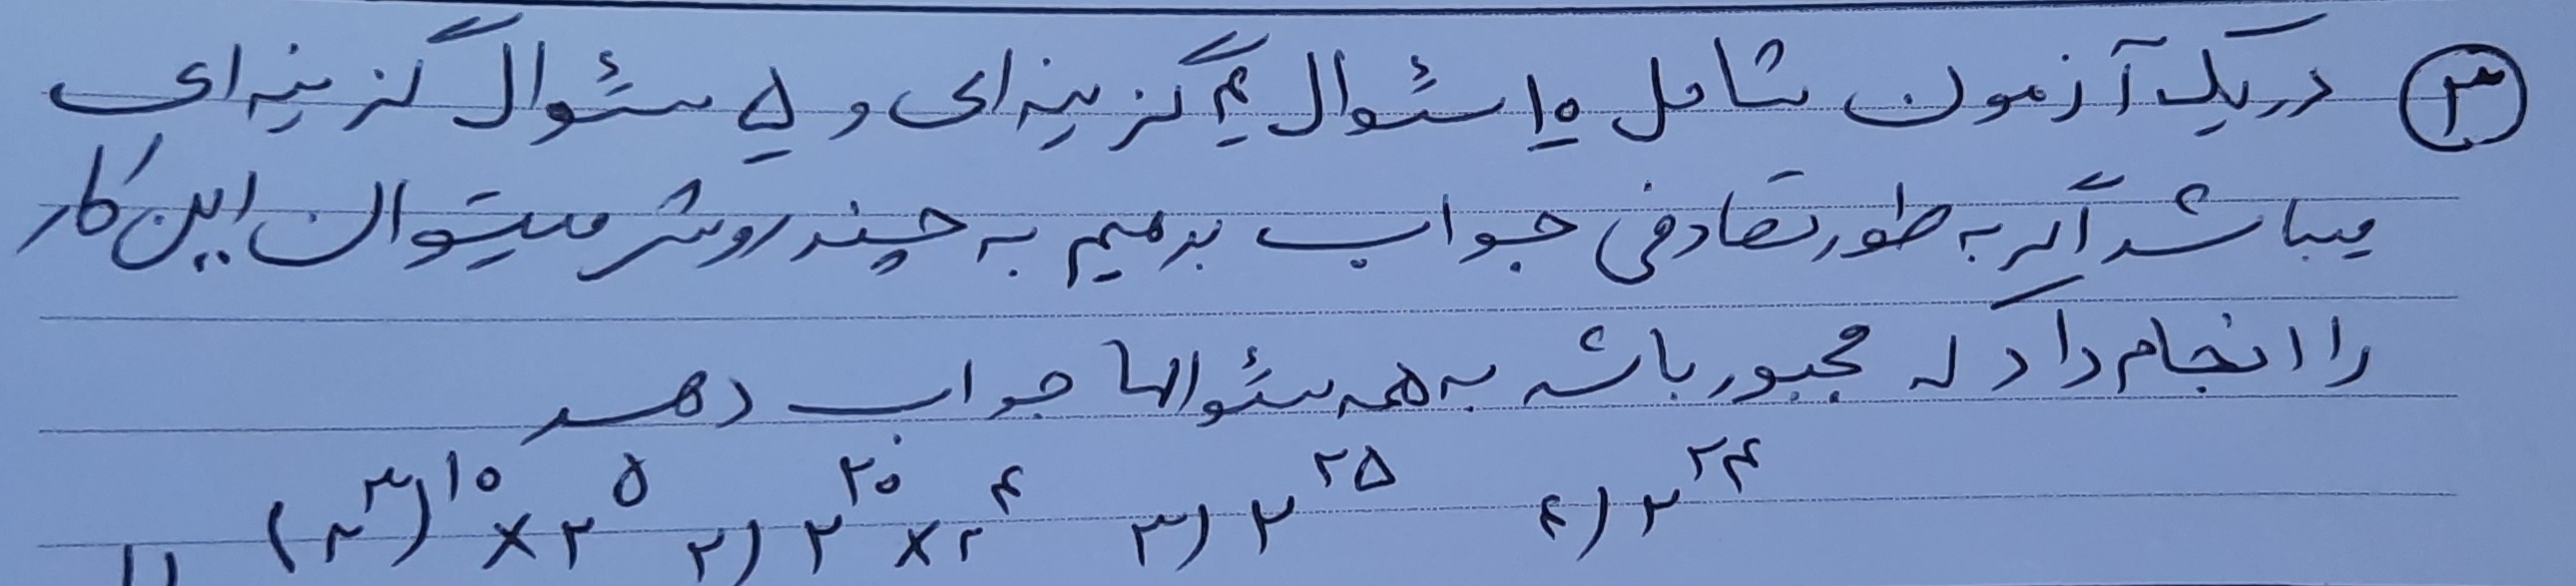 ۳ در یک آزمون شامل ۱۰ سئوال ۴ گزینه ای و ۵ سئوال گزینه ای
میباشد اگر به طور تصادفی جواب بدهیم به چند روش میتوان این کار
را انجام داد که مجبور باشد به همه سئوالها جواب دهد
۱) (۲^۳)^۱۰ × ۲^۵ ۲) ۲^۲۰ × ۲^۴ ۳) ۲^۲۵ ۴) ۲^۲۴